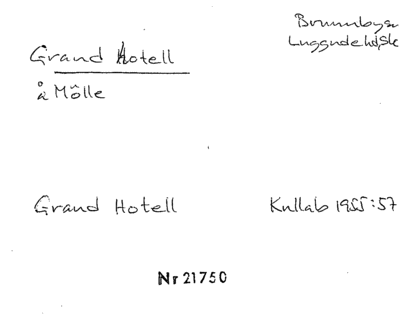 Grand Hotell
å Mölle
Brunnby sn
Luggude hd, Sk
Grand Hotell
Kullab 1955:57
Nr 21750